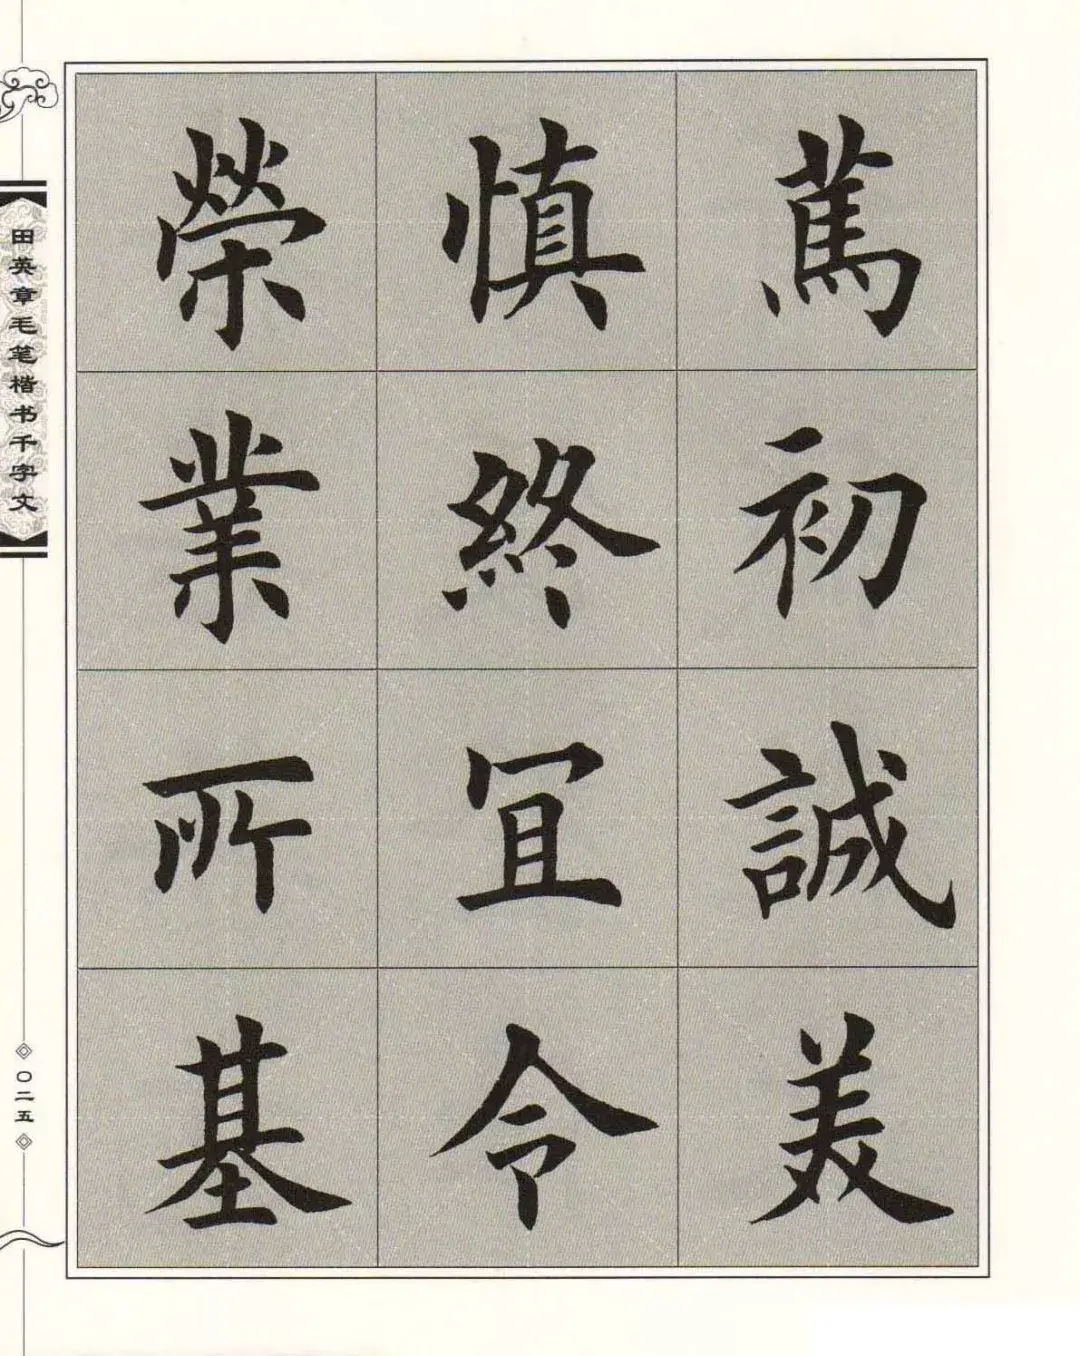 篤初誠美
慎終宜令
榮業所基
田英章毛笔楷书千字文
〇二五